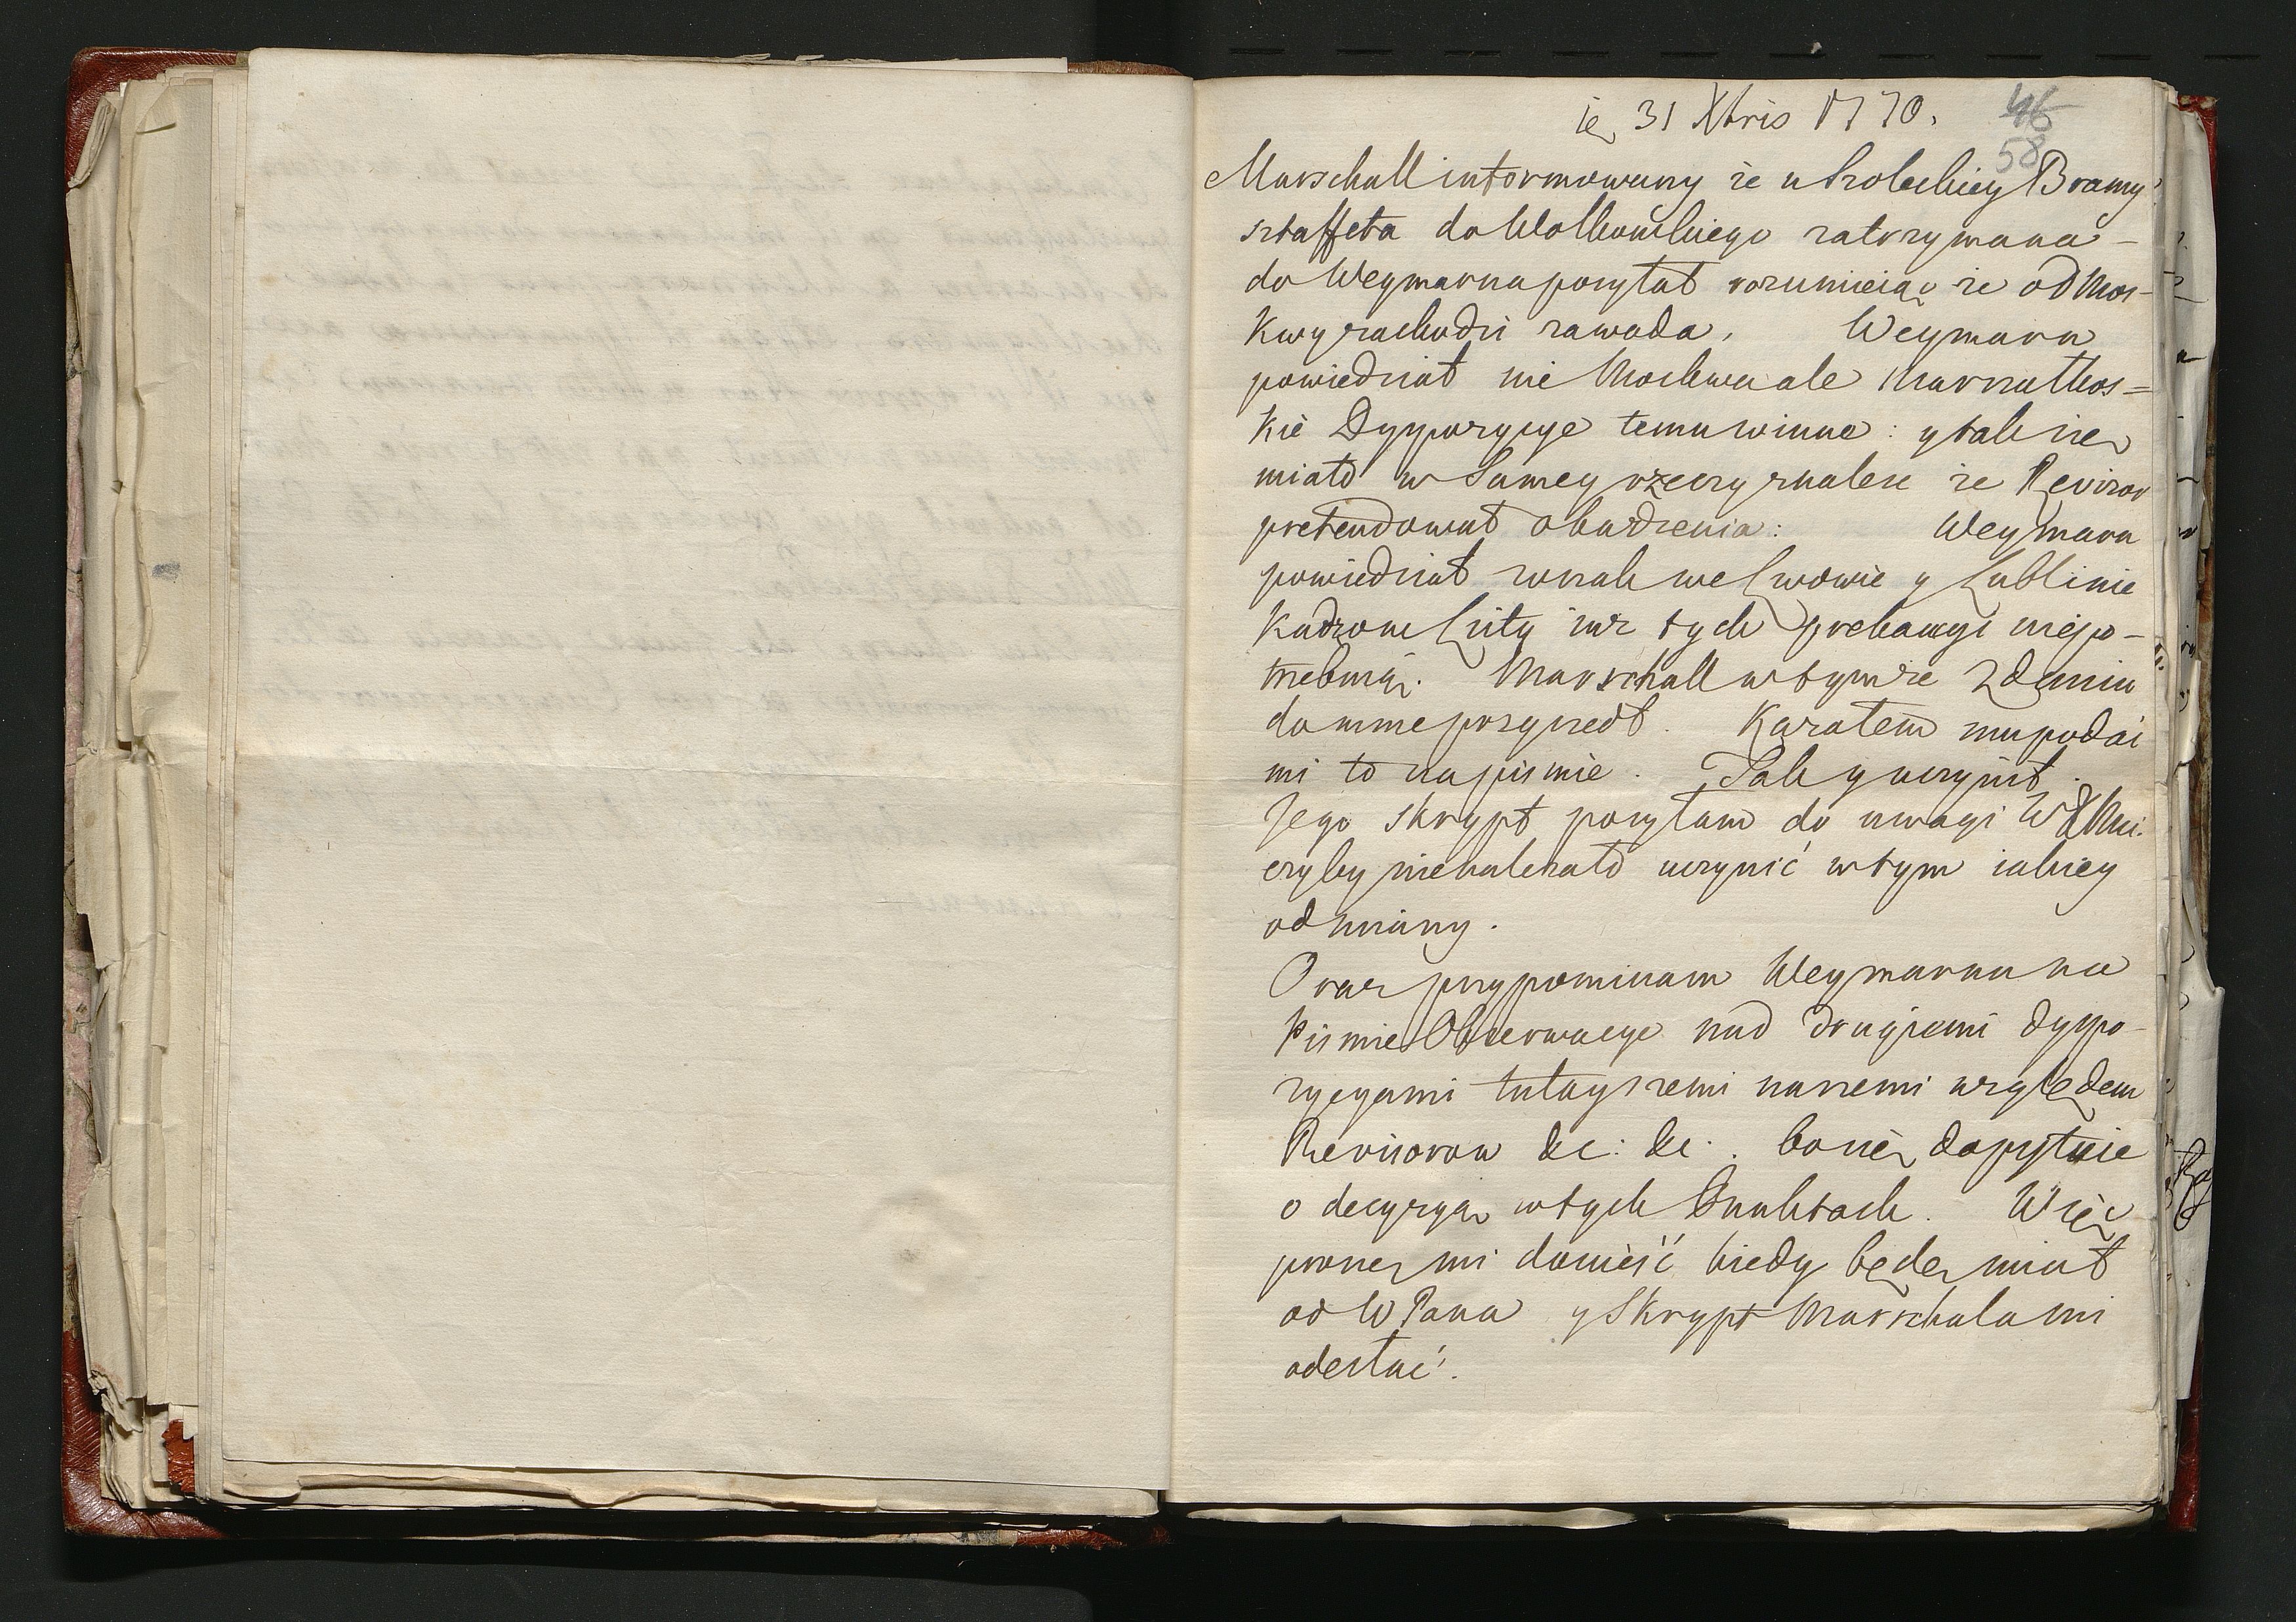 ię 31 Xbris 1770.
46
58
Marschall informowany że u Kroleckiey Bramy
sztaffeta do Wolkonskiego zatrzymana –
do Weymarna posyłał rozumieiąc że od Mos-
kwy zachodzi zawada. Weymarn
powiedział nie Moskwa ale Marszałkos=
kie Dyspozycye temu winne: y tak się
miało w Samey rzeczy znalesc że Rewizor
pretendował obaczenia: Weymarn
powiedział wszak we Lwowie y Lublinie
Kadzone Listy iusz tych prekaucyi niepo-
trzebuią. Marschall w tymże zdaniu
do mnie przyszedł. Kazałem mu podai
mi to na pismie. Tak y uczynił.
Jego skrypt posyłam do uwagi WXMci.
czyby nienależało uczynić w tym iakiey
odmiany.
Oraz przypominam Weymarna na
Pismie Obserwacye nad drugiemi dyspo-
zycyami tutayszemi naszemi względem
Rewisorow &c: &c. bo się dopytuie
o decyzyą w tych Punktach. Więc
proszę mi donieść kiedy będę miał
od WPana y Skrypt Marschala mi
odesłać.